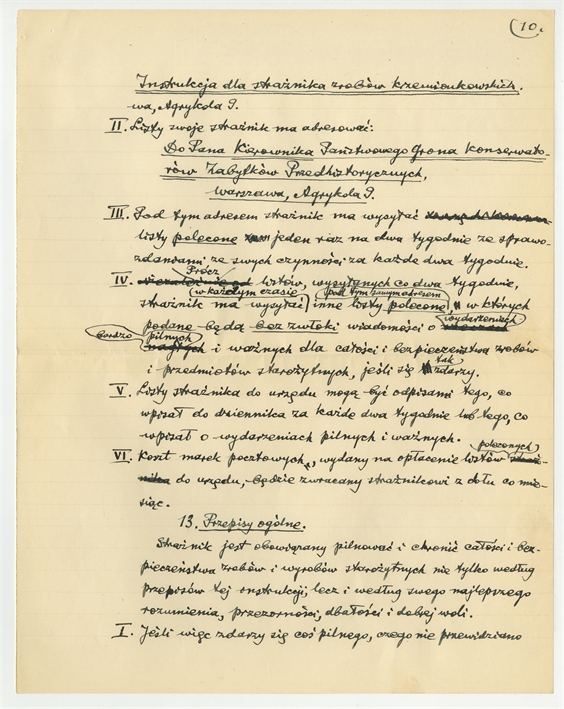 10.
Instrukcja dla strażnika zrębów krzemionkowskich.
wa, Agrykola 9.
II. Listy swoje strażnik ma adresować:
Do Pana Kierownika Państwowego Grona Konserwato-
rów Zabytków Przedhistorycznych,
Warszawa, Agrykola 9.
III. Pod tym adresem strażnik ma wysyłać
listy polecone jeden raz na dwa tygodnie ze sprawo-
zdaniami ze swych czynności za każde dwa tygodnie.
IV. Prócz listów, wysyłanych co dwa tygodnie,
strażnik ma wysyłać (w każdym czasie) (pod tym samym adresem) inne listy polecone, w których
podane będą bez zwłoki wiadomości o wydarzeniach
bardzo pilnych i ważnych dla całości i bezpieczeństwa zrębów
i przedmiotów starożytnych, jeśli się tak zdarzy.
V. Listy strażnika do urzędu mogą być odpisami tego, co
wpisał do dziennika za każde dwa tygodnie lub tego, co
wpisał o wydarzeniach pilnych i ważnych.
VI. Koszt marek pocztowych, wydany na opłacenie listów poleconych
do urzędu, będzie zwracany strażnikowi z dołu co mie-
siąc.
13. Przepisy ogólne.
Strażnik jest obowiązany pilnować i chronić całości i bez-
pieczeństwa zrębów i wyrobów starożytnych nie tylko według
przepisów tej instrukcji, lecz i według swego najlepszego
rozumienia, przezorności, dbałości i dobrej woli.
I. Jeśli więc zdarzy się coś pilnego, czego nie przewidziano